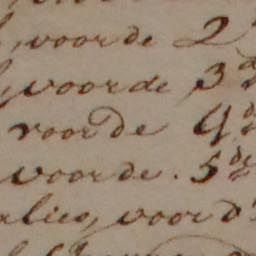 , voor de 2
, voor de 3
voor de 4de
voor de. 5de
voor d